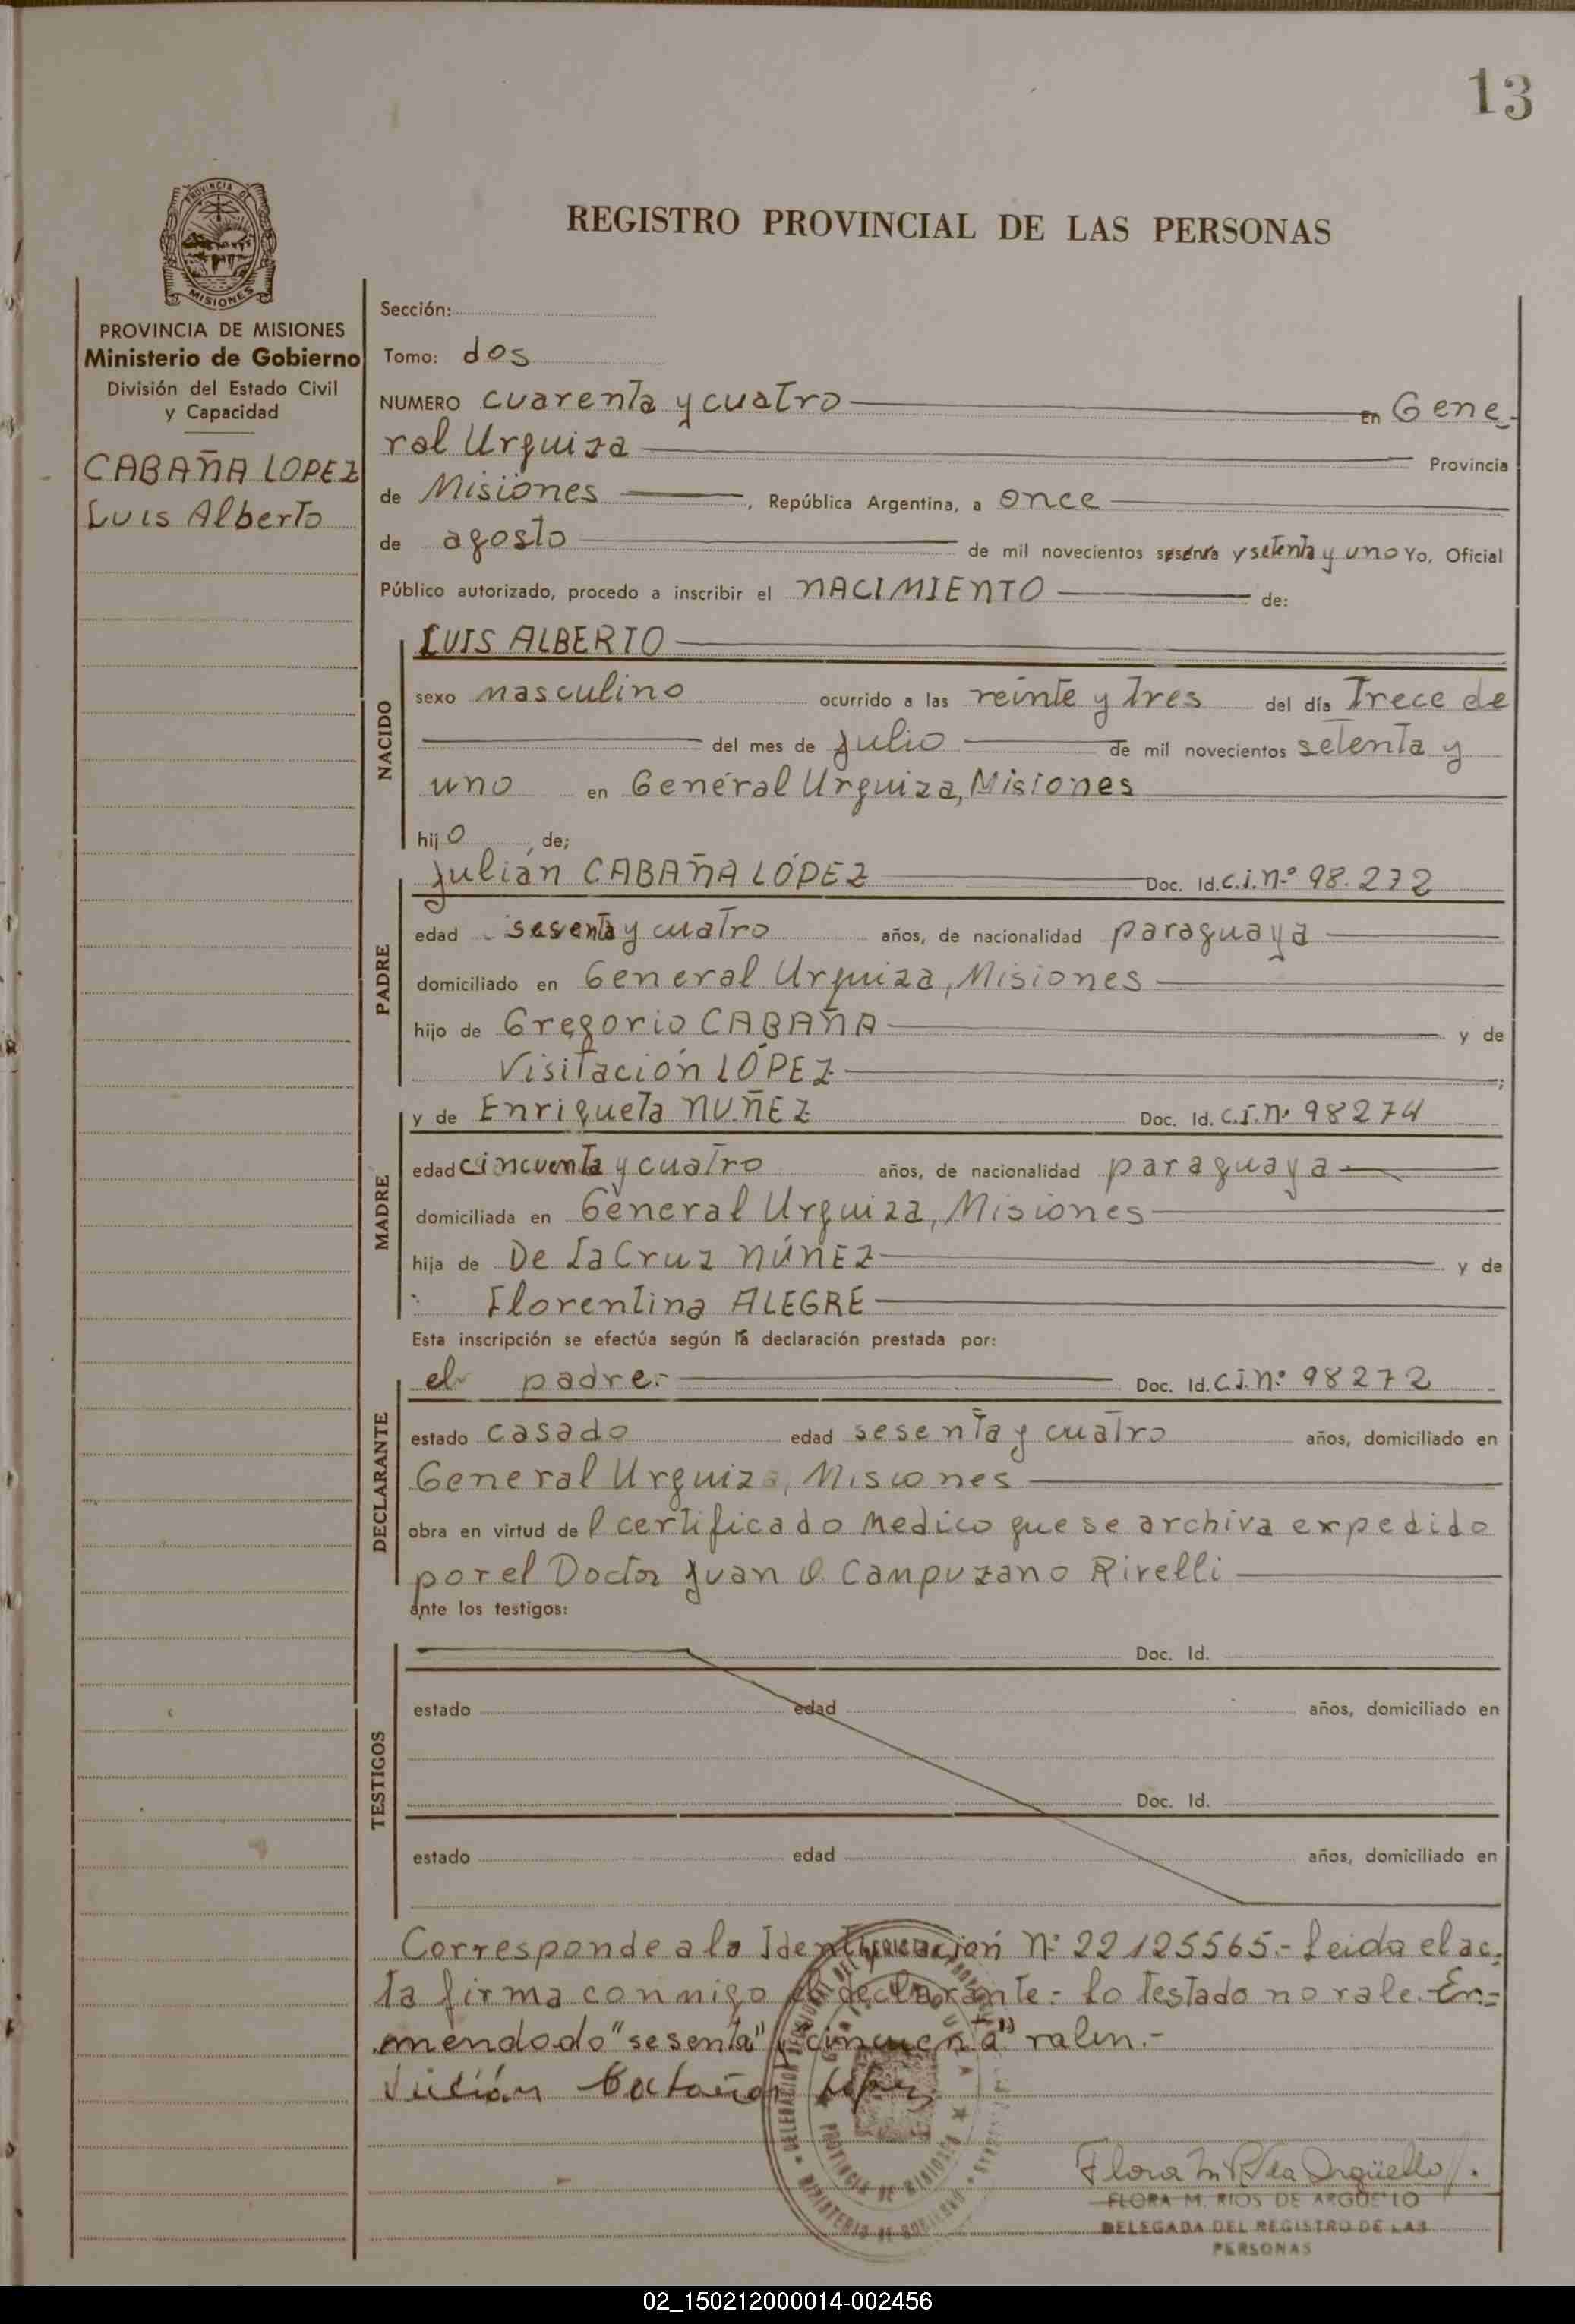 13
PROVINCIA DE
MISIONES
REGISTRO PROVINCIAL DE LAS PERSONAS
PROVINCIA DE MISIONES
Ministerio de Gobierno
División del Estado Civil
y Capacidad
CABAÑA LOPEZ
Luis Alberto
Sección:
Tomo: dos
NUMERO cuarenta y cuatro en Gene-
ral Urquiza Provincia
de Misiones, República Argentina, a once
de agosto de mil novecientos sesenta y setenta y uno Yo, Oficial
Público autorizado, procedo a inscribir el NACIMIENTO de:
NACIDO
LUIS ALBERTO
sexo masculino ocurrido a las veinte y tres del día Trece de
del mes de julio de mil novecientos setenta y
uno en General Urquiza, Misiones
hijo, de;
PADRE
Julián CABAÑA LÓPEZ Doc. Id. C.I. Nº 98.272
edad sesenta y cuatro años, de nacionalidad paraguaya
domiciliado en General Urquiza, Misiones
hijo de Gregorio CABAÑA y de
Visitación LÓPEZ;
MADRE
y de Enriqueta NUÑEZ Doc. Id. C.I. Nº 98274
edad cincuenta y cuatro años, de nacionalidad paraguaya
domiciliada en General Urquiza, Misiones
hija de De La Cruz NÚÑEZ y de
Florentina ALEGRE
Esta inscripción se efectúa según la declaración prestada por:
DECLARANTE
el padre.- Doc. Id. C.I. Nº 98272
estado casado edad sesenta y cuatro años, domiciliado en
General Urquiza, Misiones
obra en virtud del certificado medico que se archiva expedido
por el Doctor Juan O. Campuzano Rivelli
ante los testigos:
TESTIGOS
Doc. Id.
estado edad años, domiciliado en
Doc. Id.
estado edad años, domiciliado en
Corresponde a la Identificación Nº 22125565.- Leida el ac-
ta firma conmigo el declarante.- Lo Testado no vale. En-
mendado "sesenta" y "cincuenta" valen.-
Julián Cabaña López
PROVINCIA DE MISIONES
MINISTERIO DE GOBIERNO
FLORA M. RIOS DE ARGÜELLO
DELEGADA DEL REGISTRO DE LAS
PERSONAS
02_150212000014-002456